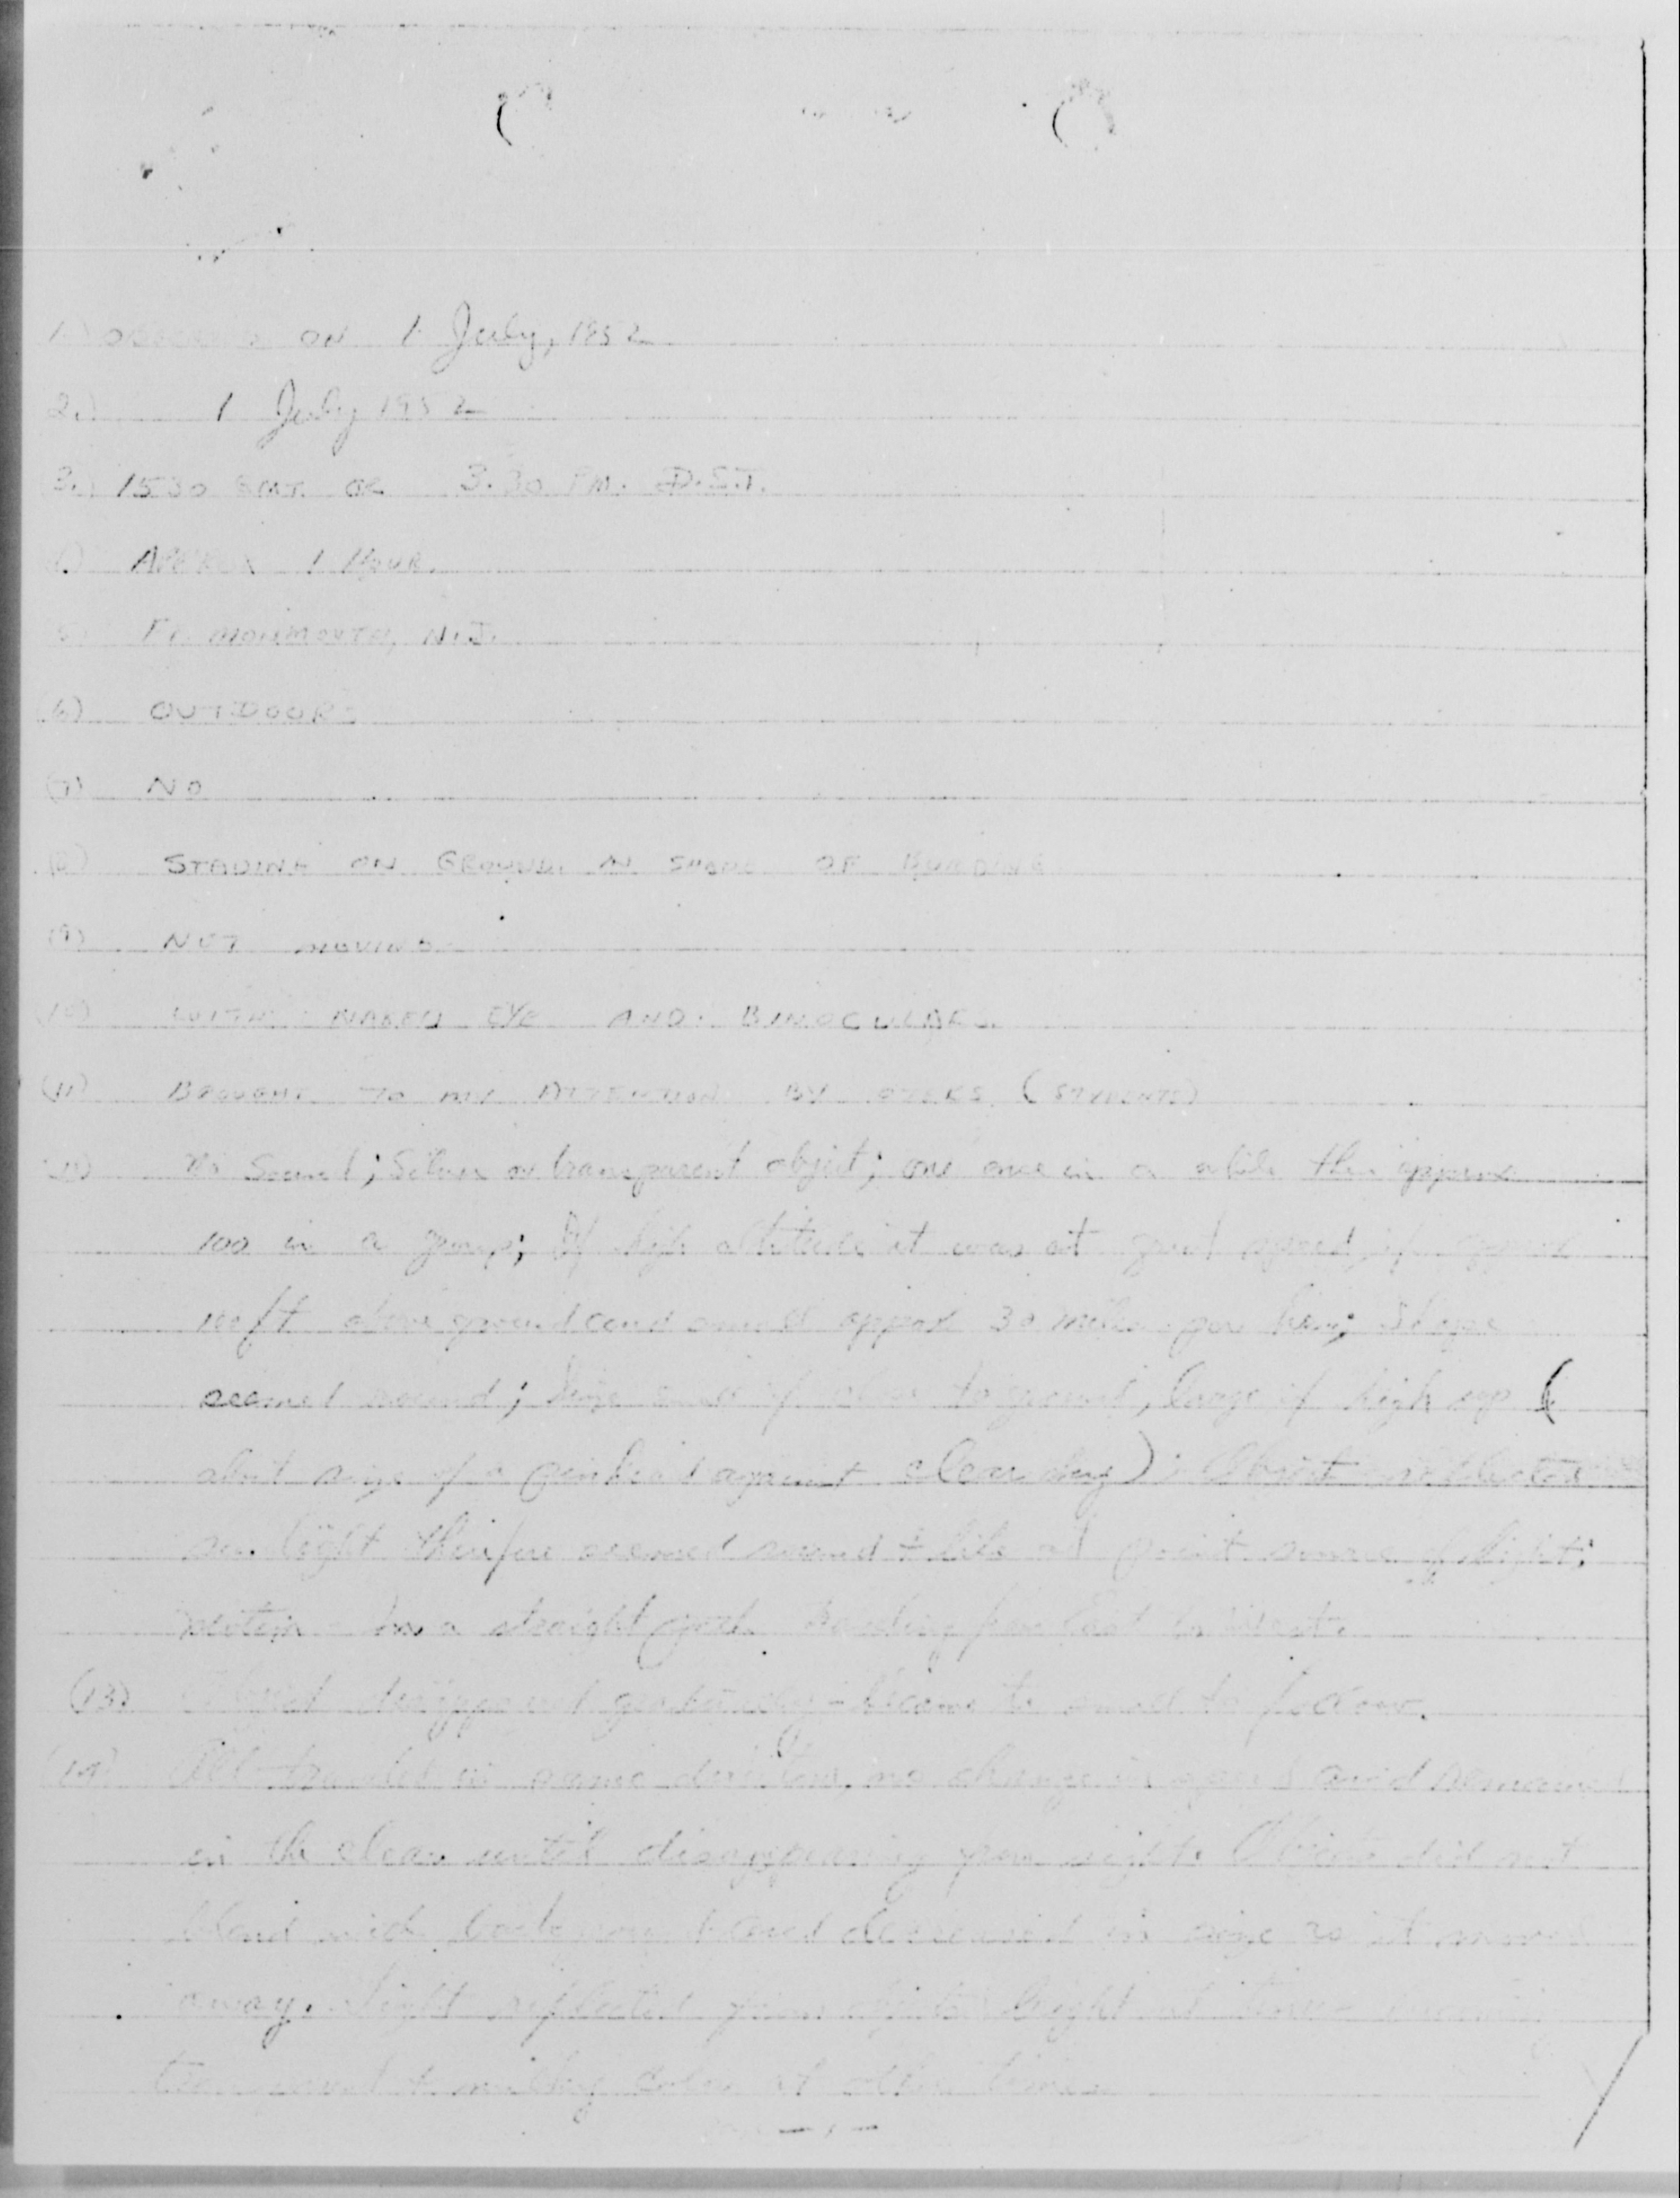 1.) ON 1 July, 1952
2.) 1 July 1952
3.) 1530 OR 3:30 P.M. D.S.T.
APPROX 1 HOUR.
(5) FT. MONMOUTH, N.J.
(6) OUTDOORS
(7) NO
(8) STADING ON GROUND IN SHADE OF BUILDING
(9) NOT MOVING
(10) WITH NAKED EYE AND BINOCULARS.
(11) BROUGHT TO MY ATTENTION BY OTERS (STUDENTS)
No Sound; Silver or transparent object; one once in a while then approx
100 in a group; If high altitude it was at great speed, if approx
100 ft above ground and small approx 30 miles per hour; Shape
seemed round; Size small if close to ground, large if high up (
about size of a pinhead against clear sky); Object reflected
sun light therefore seemed round & like a point source of light;
motion in a straight path traveling from East to West.
(13) Object disappeared gradually - became to small to follow.
(14) All traveled in same direction, no change in speed and remained
in the clear until disappearing from sight. Objects did not
blend with background and decreased in size as it moved
away. Light reflected from objects bright at times
& milky color at other times
- 1 -